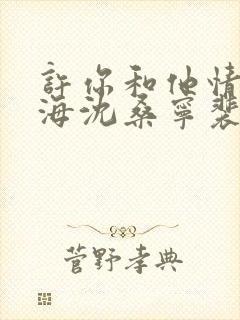 許你和他情
海沈桑寧裴
菅野孝典